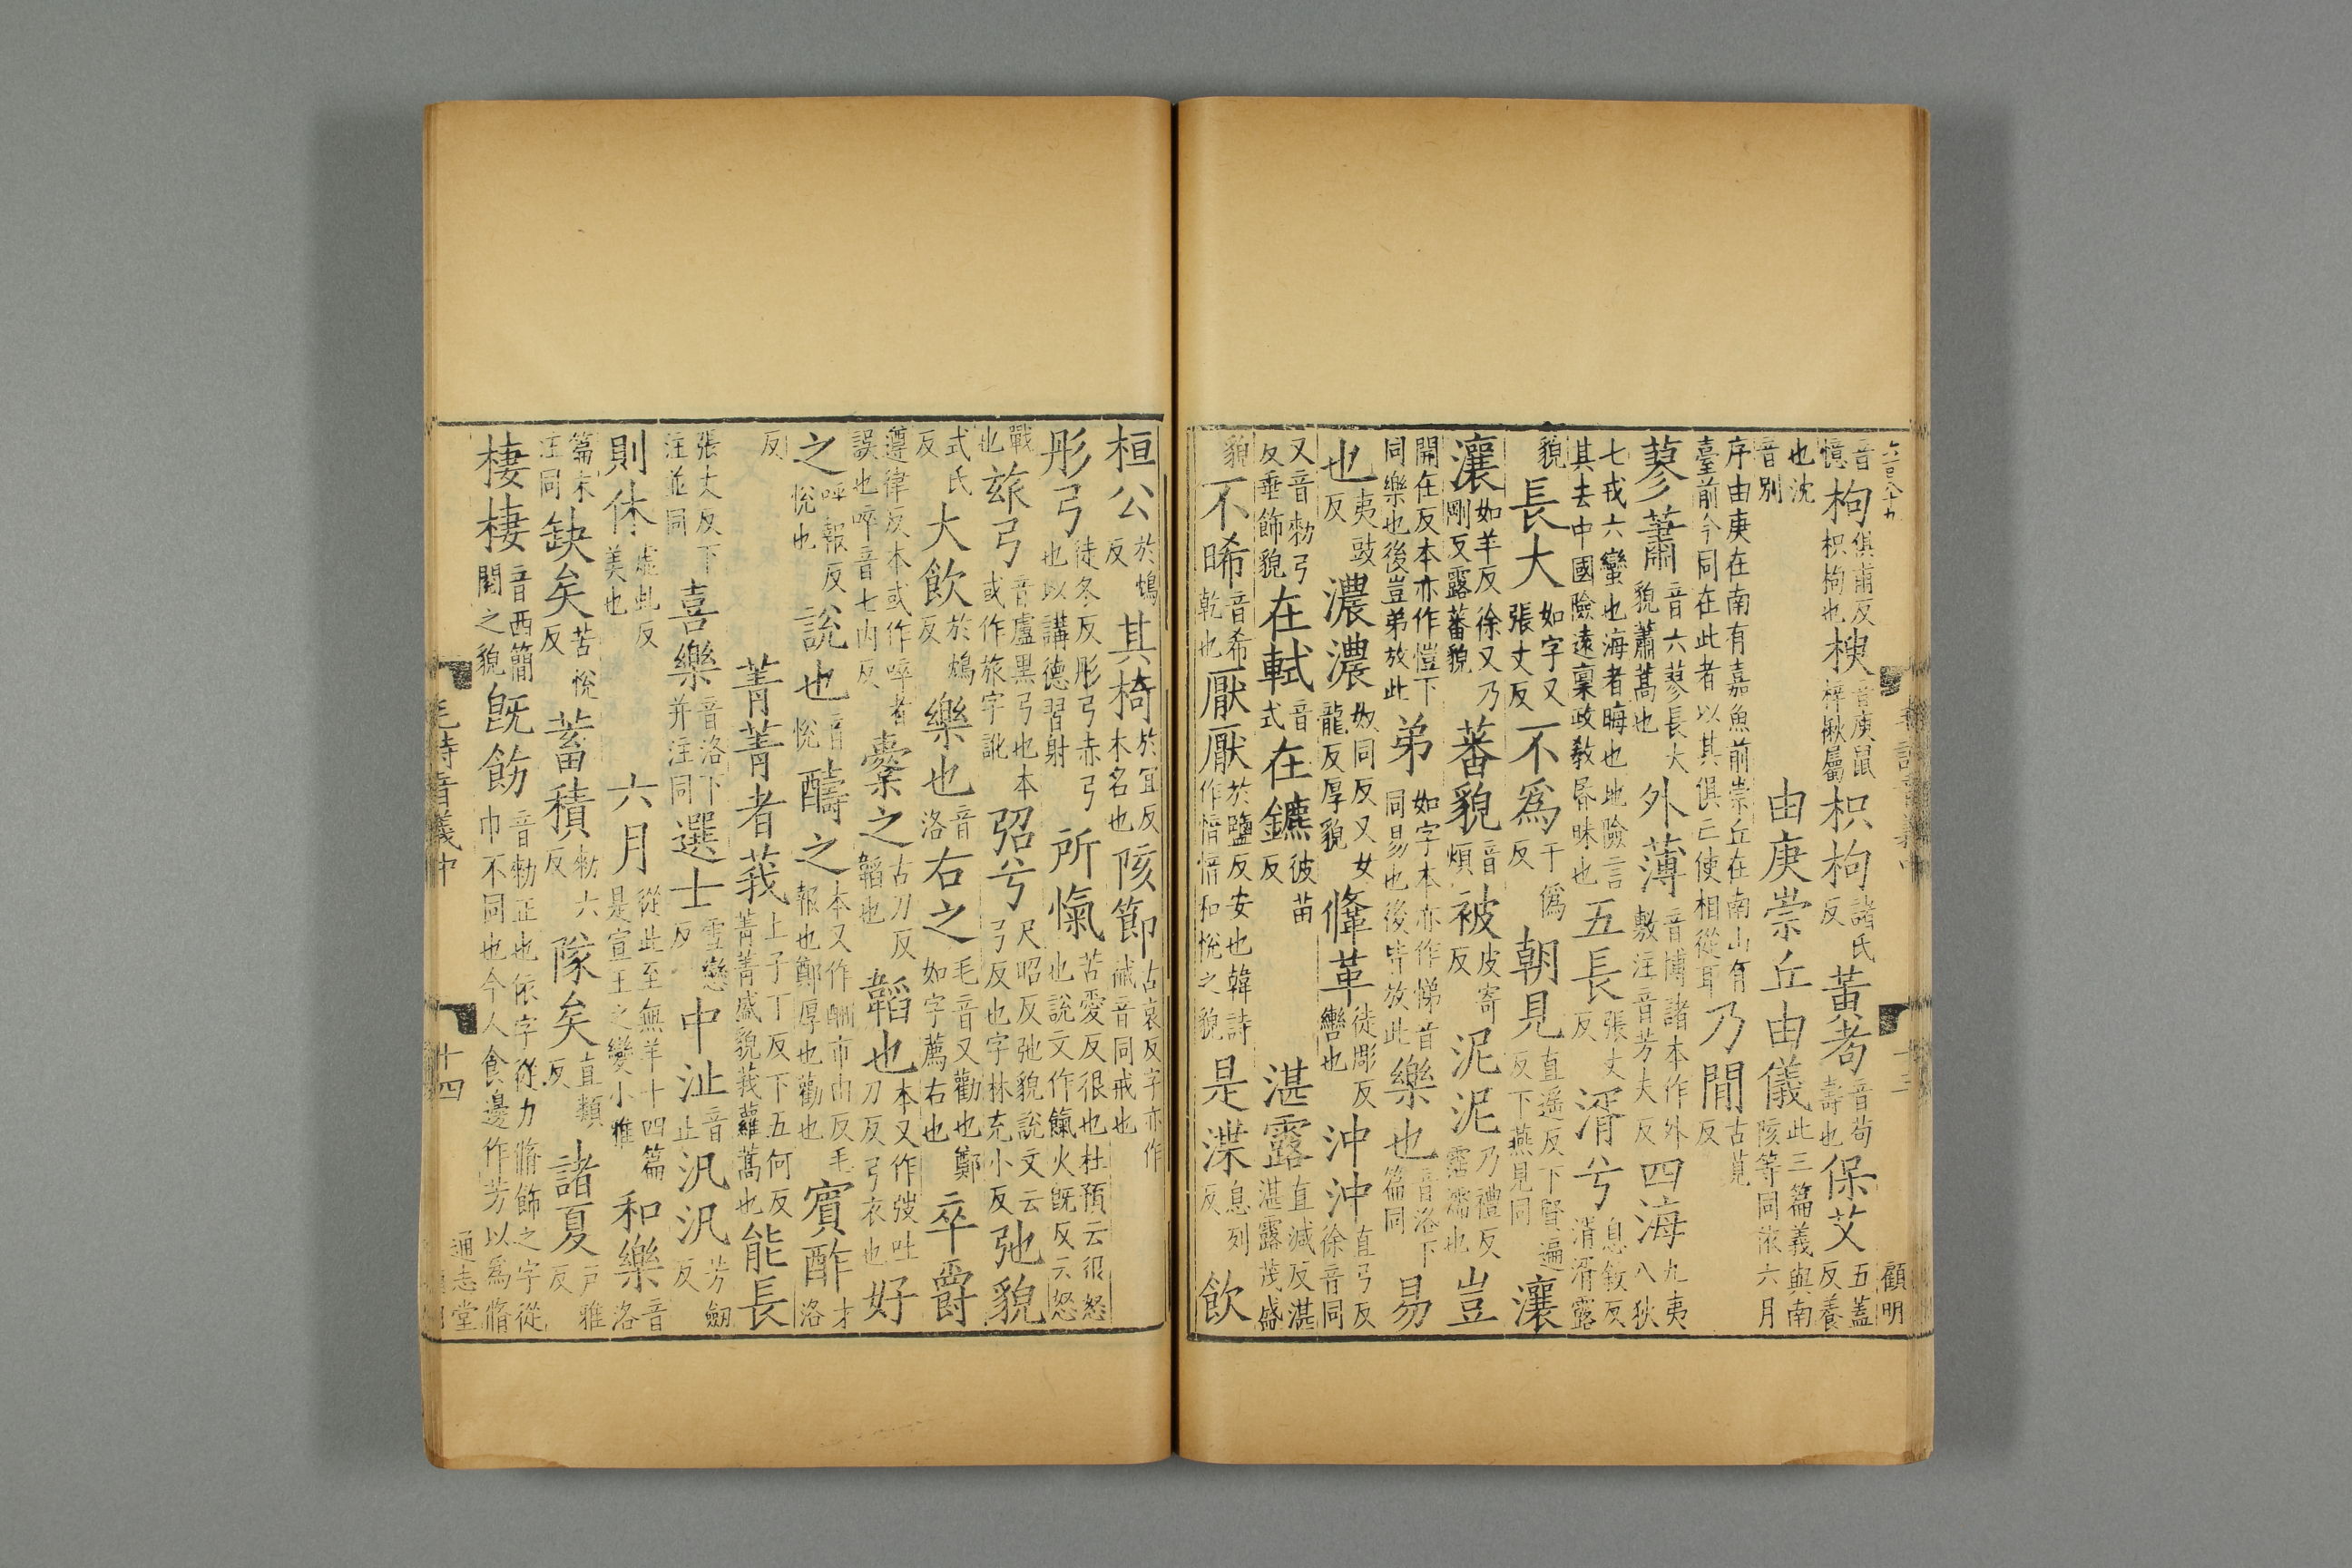 音憶枸俱甫反枳枸也楰音庾鼠梓楸屬枳枸諸氏反黃耇音苟壽也保艾五蓋反養
也沈音別由庚崇丘由儀此三篇義與南陔等同依六月
序由庚在南有嘉魚前崇丘在南山有臺前今同在此者以其俱亡使相從耳乃閒古莧反
蓼蕭音六蓼長大貌蕭蒿也外薄音博諸本作外敷注音芳夫反四海九夷八狄
七戎六蠻也海者晦也地險言其去中國險遠稟政教昏昧也五長張丈反湑兮息敘反湑湑露
貌長大如字又張丈反不爲于僞反朝見直遥反下賢遍反下燕見同瀼
瀼如羊反徐又乃剛反露蕃貌蕃貌音煩被皮寄反泥泥乃禮反霑濡也豈
開在反本亦作愷下同樂也後豈弟放此弟如字本亦作悌音同易也後皆放此樂也音洛下篇同易
也夷豉反濃濃奴同反又女龍反厚貌鞗革徒彫反轡也沖沖直弓反徐音同
又音勑弓反垂飾貌在軾音式在鑣彼苗反湛露直減反湛湛露茂盛
貌不晞音希乾也厭厭於鹽反安也韓詩作愔愔和悅之貌是渫息列反飲
顧明
桓公於鴆反其椅於宜反木名也陔節古哀反字亦作祴音同戒也
彤弓徒冬反彤弓赤弓也以講德習射所愾苦愛反很也杜預云很怒也說文作鎎火旣反云怒
戰也玈弓音盧黑弓也本或作旅字訛弨兮尺昭反弛貌說文云弓反也字林充小反弛貌
式氏反大飲於鴆反樂也音洛右之毛音又勸也鄭如字薦右也卒爵
遵律反本或作啐者誤也啐音七內反櫜之古刀反韜也韜也本又作弢吐刀反弓衣也好
之呼報反悅也說也音悅醻之本又作酬市由反毛報也鄭厚也勸也賓酢才洛
反菁菁者莪上子丁反下五何反菁菁盛貌莪蘿蒿也能長
張丈反下注並同喜樂音洛下并注同選士雪戀反中沚音止汎汎芳劔反
則休虛虬反美也六月從此至無羊十四篇是宣王之變小雅和樂音洛
篇末注同缺矣苦悅反蓄積勑六反隊矣直類反諸夏戶雅反
棲棲音西簡閱之貌旣飭音勑正也依字從力脩飾之字從巾不同也今人食邊作芳以爲脩
毛詩音義中
十四
通志堂